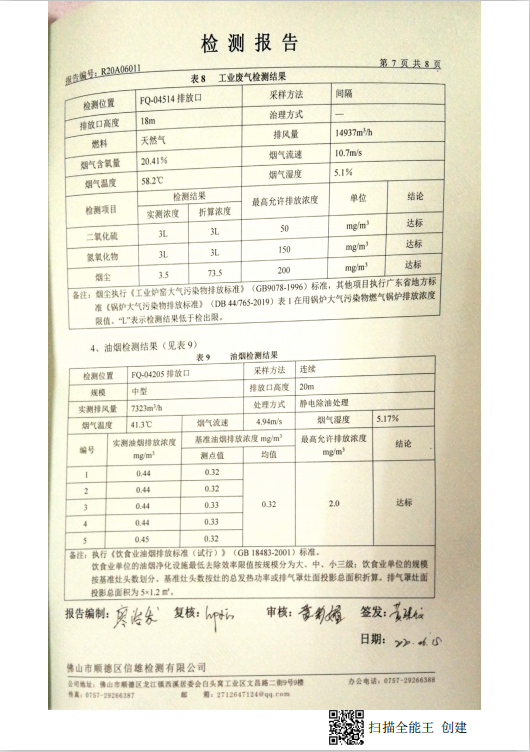 检测报告
报告编号: R20A06011
第 7 页 共 8 页
表 8 工业废气检测结果
检测位置 FQ-04514 排放口 采样方法 间隔
排放口高度 18m 治理方式 —
燃料 天然气 排风量 14937m³/h
烟气含氧量 20.41% 烟气流速 10.7m/s
烟气温度 58.2℃ 烟气湿度 5.1%
检测项目 检测结果 最高允许排放浓度 单位 结论
实测浓度 折算浓度
二氧化硫 3L 3L 50 mg/m³ 达标
氮氧化物 3L 3L 150 mg/m³ 达标
烟尘 3.5 73.5 200 mg/m³ 达标
备注: 烟尘执行《工业炉窑大气污染物排放标准》(GB9078-1996) 标准, 其他项目执行广东省地方标
准《锅炉大气污染物排放标准》(DB 44/765-2019) 表 1 在用锅炉大气污染物燃气锅炉排放浓度
限值。“L”表示检测结果低于检出限。
4、油烟检测结果(见表 9)
表 9 油烟检测结果
检测位置 FQ-04205 排放口 采样方式 连续
规模 中型 排放口高度 20m
实测排风量 7323m³/h 处理方式 静电除油处理
烟气温度 41.3℃ 烟气流速 4.94m/s 烟气湿度 5.17%
编号 实测油烟排放浓度 mg/m³ 基准油烟排放浓度 mg/m³ 最高允许排放浓度 mg/m³ 结论
测点值 均值
1 0.44 0.32
2 0.44 0.32
3 0.44 0.33 0.32 2.0 达标
4 0.44 0.33
5 0.45 0.32
备注: 执行《饮食业油烟排放标准(试行)》(GB 18483-2001) 标准。
饮食业单位的油烟净化设施最低去除效率限值按规模分为大、中、小三级; 饮食业单位的规模
按基准灶头数划分。基准灶头数按灶的总发热功率或排气罩灶面投影总面积折算。排气罩灶面
投影总面积为 5×1.2 ㎡。
报告编制: 复核: 审核: 签发:
日期:
佛山市顺德区信雄检测有限公司
公司地址: 佛山市顺德区龙江镇西溪居委会白头窝工业区文昌路二街9号9楼 办公电话: 0757-29266388
传真: 0757-29266387 邮箱: 2712647124@qq.com
扫描全能王 创建